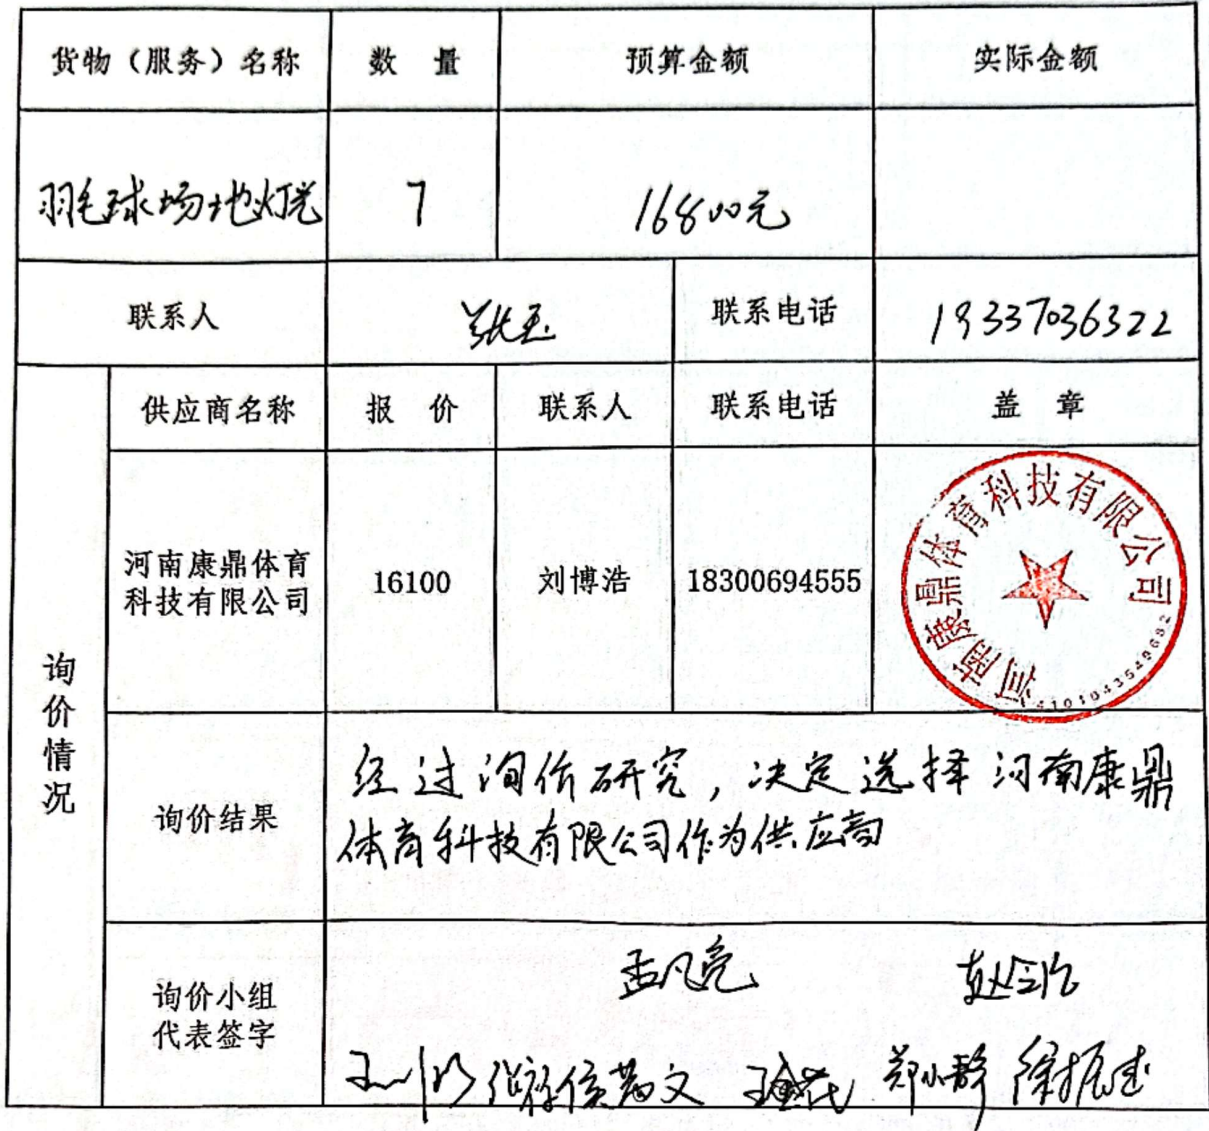 货物（服务）名称 数 量 预算金额 实际金额
羽毛球场地灯光 7 16800元
联系人 张玉 联系电话 19337036322
供应商名称 报 价 联系人 联系电话 盖 章
询价情况
河南康鼎体育
科技有限公司
16100 刘博浩 18300694555
河南康鼎体育科技有限公司
4101043549682
询价结果
经过询价研究，决定选择河南康鼎
体育科技有限公司作为供应商
询价小组
代表签字
孟凡亮
郑小静 徐振